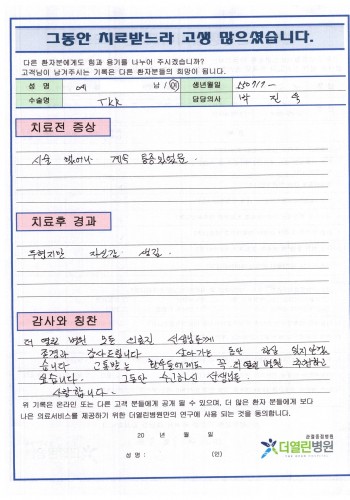 그동안 치료받느라 고생 많으셨습니다.
다른 환자분에게도 힘과 용기를 나누어 주시겠습니까?
고객님이 남겨주시는 기록은 다른 환자분들의 희망이 됩니다.
성 명 예 남 / 여 생년월일 550717-
수술명 TKR 담당의사 박 진
치료전 증상
시술 했어나 계속 통증있었음.
치료후 경과
자신감 생김.
감사와 칭찬
더 열린 병원 모든 의료진 선생님들께
존경과 감사드립니다 살아가는 동안 항상 잊지않겠
습니다 고통받는 환우들에게도 꼭 더 열린 병원 추천하고
싶습니다. 그동안 수고하신 선생님들
사랑합니다~
위 기록은 온라인 또는 다른 고객 분들에게 공개 될 수 있으며, 더 많은 환자 분들에게 보다
나은 의료서비스를 제공하기 위한 더열린병원만의 연구에 사용 되는 것을 동의합니다.
20 년 월 일
성 명 : (인)
관절중점병원
더열린병원